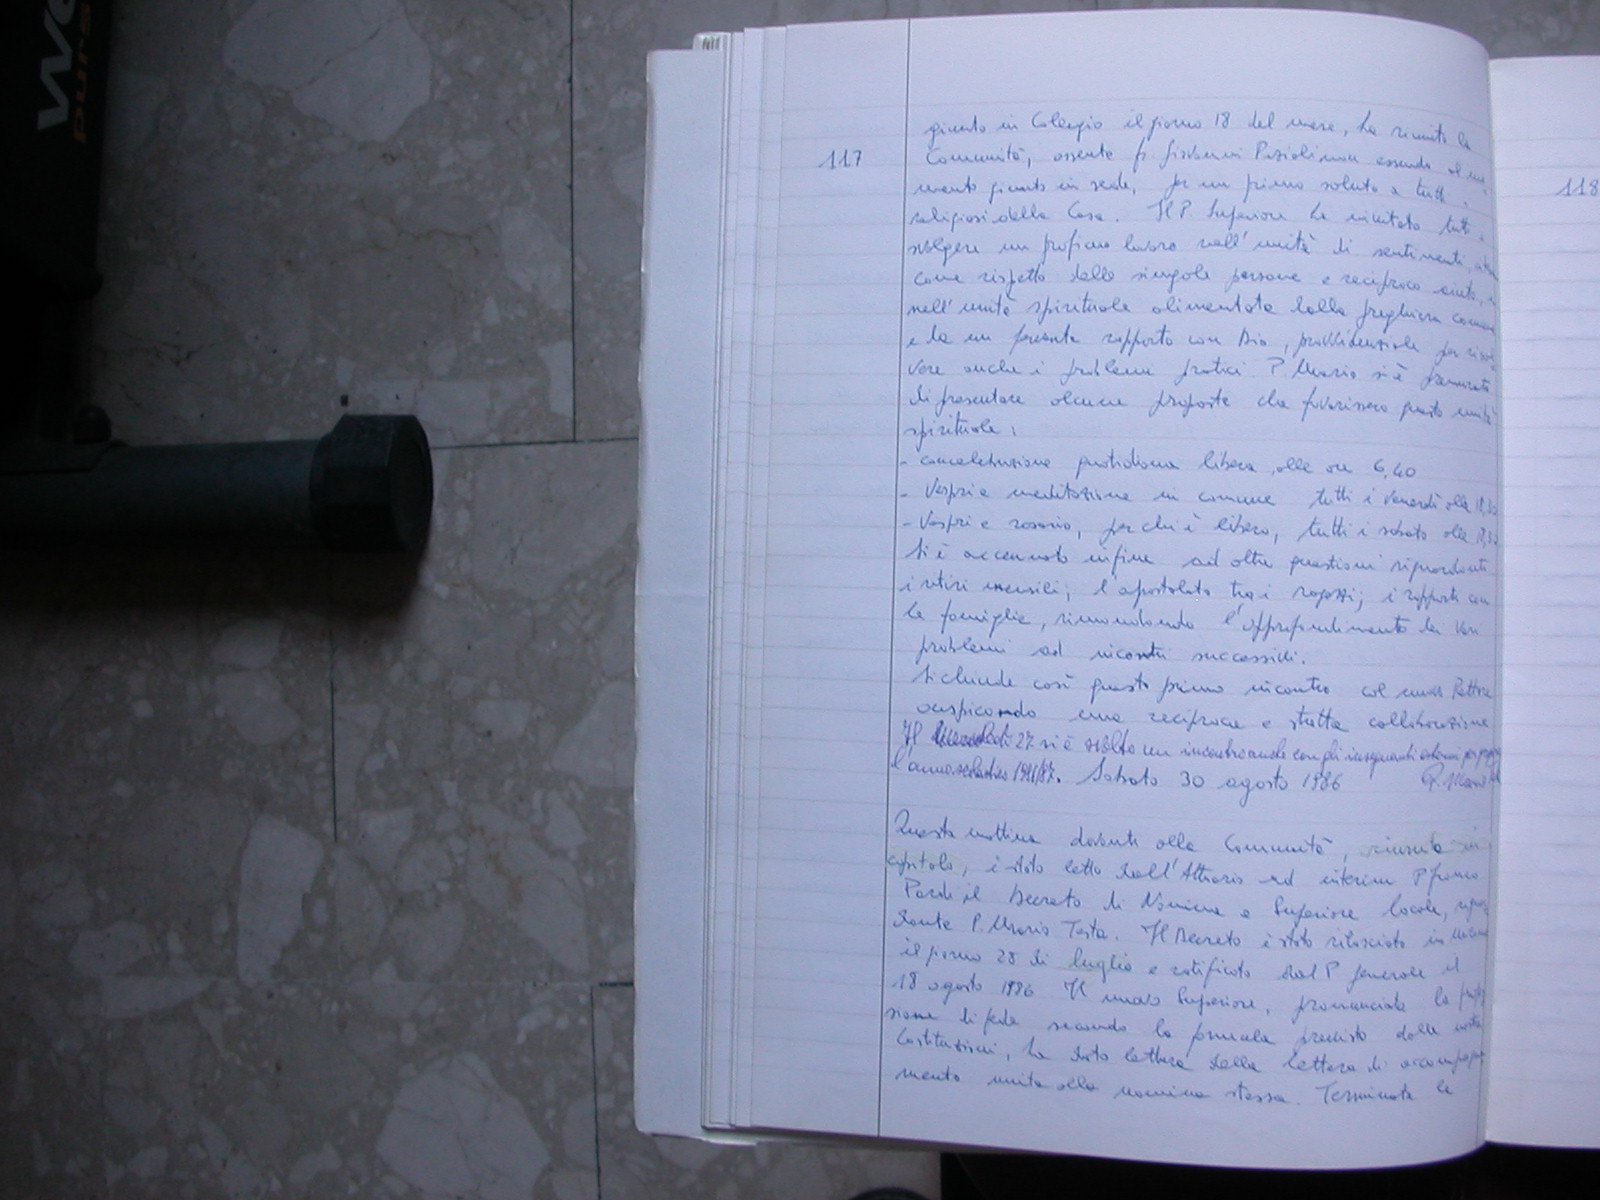 117
giunto in Collegio il giorno 18 del mese, ha riunito la
Comunità, assente fr. Giovanni non essendo al mo
mento giunto in sede, per un primo saluto a tutti i
religiosi della Casa. Il P. Superiore ha invitato tutti a
svolgere un proficuo lavoro nell'unità di sentimenti,
come rispetto delle singole persone e reciproco aiuto, e
nell'unità spirituale alimentata dalla preghiera comune
e da un rapporto con Dio, provvidenziale per risol
vere anche i problemi pratici. P. Mario si è premurato
di presentare alcune proposte che favorissero questa unità
spirituale:
- concelebrazione quotidiana libera, alle ore 6,40
- Vespri e meditazione in comune tutti i Venerdì alle 18,30
- Vespri e rosario, per chi è libero, tutti i sabato alle
Si è accennato infine ad altre questioni riguardanti
i ritiri mensili; l'apostolato tra i ragazzi; i rapporti con
le famiglie, rimandando l'approfondimento dei vari
problemi ad incontri successivi.
Si chiude così questo primo incontro col nuovo Rettore
auspicando una reciproca e stretta collaborazione
Il Mercoledì 27 si è svolto un incontro anche con gli insegnanti esterni per
l'anno scolastico 1986/87. Sabato 30 agosto 1986 P. Mario
Questa mattina davanti alla Comunità, riunita in
capitolo, è stato letto dall'Attuario ad interim P. Franco
il Decreto di Nomina a Superiore locale, riguar
dante P. Mario Testa. Il Decreto è stato rilasciato in
il giorno 28 di luglio e ratificato dal P. Generale il
18 agosto 1986. Il nuovo Superiore, pronunciata la profes
sione di fede secondo la formula prevista dalle nostre
Costituzioni, ha dato lettura della lettera di accompagna
mento unita alla nomina stessa. Terminata la
118